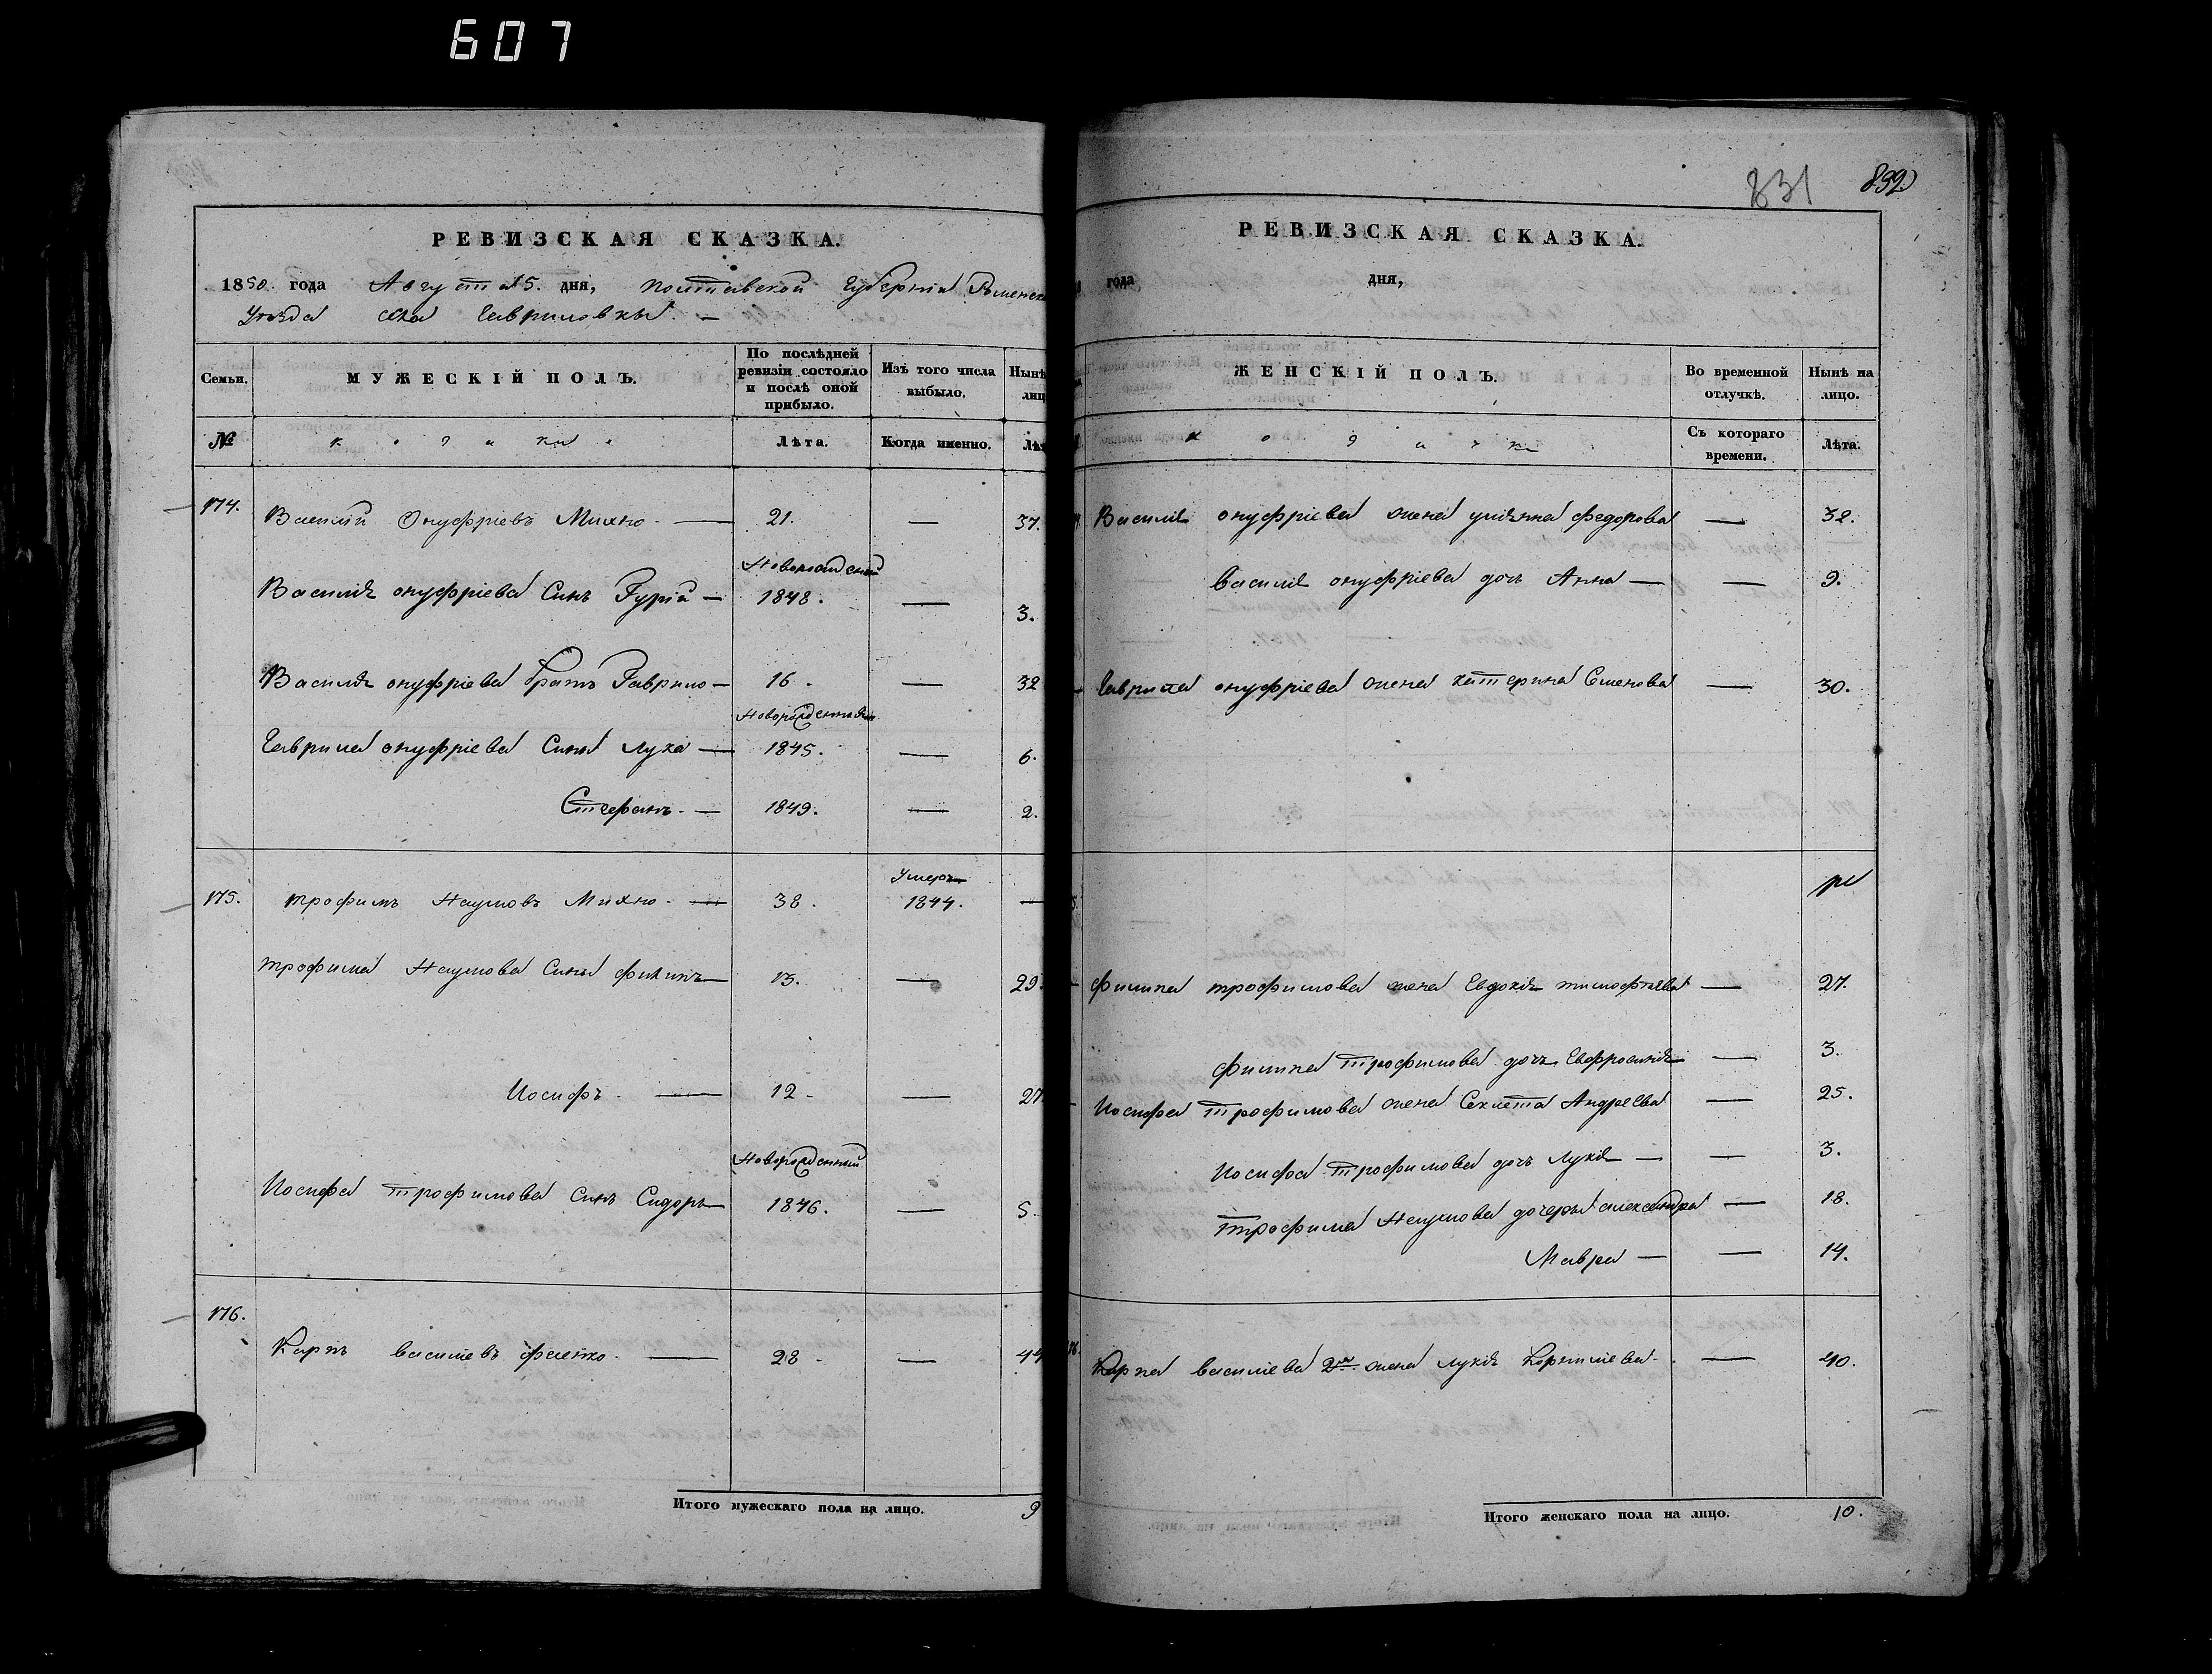 607
РЕВИЗСКАЯ СКАЗКА.
1850 года Августа 15. дня, Полтавской Губерніи Роменск
Уезда села Гавриловки. —
Семьи. МУЖЕСКІЙ ПОЛЪ. По послѣдней ревизіи состояло и послѣ оной прибыло. Изъ того числа выбыло. Нынѣ лиц
№ к о з а ки Лѣта. Когда именно. Лѣт
174. Василій Онуфріевъ Михно. — 21. — 37.
Новорожденный
Василія онуфріева Сынъ Гурій — 1848. — 3.
Василія онуфріева братъ Гаврило — 16. — 32
Новорожденные
Гаврила онуфріева Сыны Лука — 1845. — 6.
Стефанъ. — 1849. — 2.
Умеръ
175. трофимъ Наумовъ Михно. — 38. 1844. —
трофима Наумова Сыны филипъ — 13. — 29.
Иосифъ. — 12. — 27
Новорожденный
Иосифа трофимова Сынъ Сидоръ 1846. — 5.
176. Карпъ васильевъ — 28. — 44
Итого мужескаго пола на лицо. 9
831 892
РЕВИЗСКАЯ СКАЗКА.
года дня,
ЖЕНСКІЙ ПОЛЪ. Во временной отлучкѣ. Нынѣ на лицо.
к о з а ч к Съ котораго времени. Лѣта.
Василія онуфріева жена улияна федорова — 32.
Василія онуфріева дочь Анна — — 9.
Гаврила онуфріева жена катерина Семенова — 30.
филипа трофимова жена Евдокія тимофѣева — 27.
филипа трофимова дочь Евфросинія — 3.
Иосифа трофимова жена Секлета Андреева — 25.
Иосифа трофимова дочь Лукія — — 3.
трофима Наумова дочеры александра — 18.
Мавра — — 14.
Карпа василіева 2я жена лукія Корниліева. — 40.
Итого женскаго пола на лицо. 10.